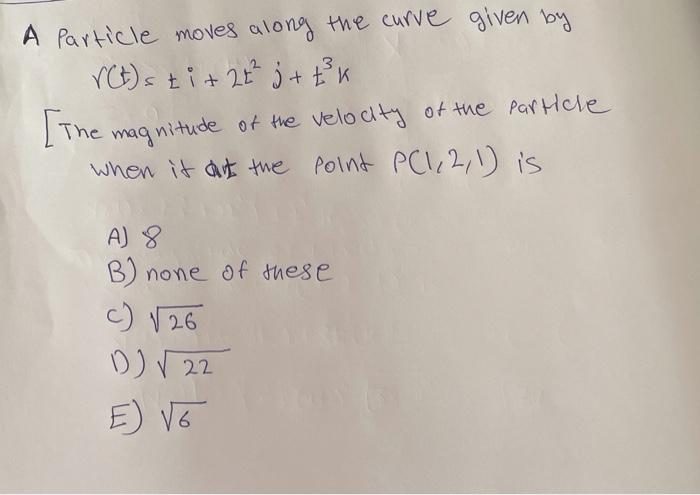 A Particle moves along the curve given by
r(t) = t i + 2t² j + t³ k
[The magnitude of the velocity of the particle
when it at the point P(1,2,1) is
A) 8
B) none of these
C) √26
D) √22
E) √6